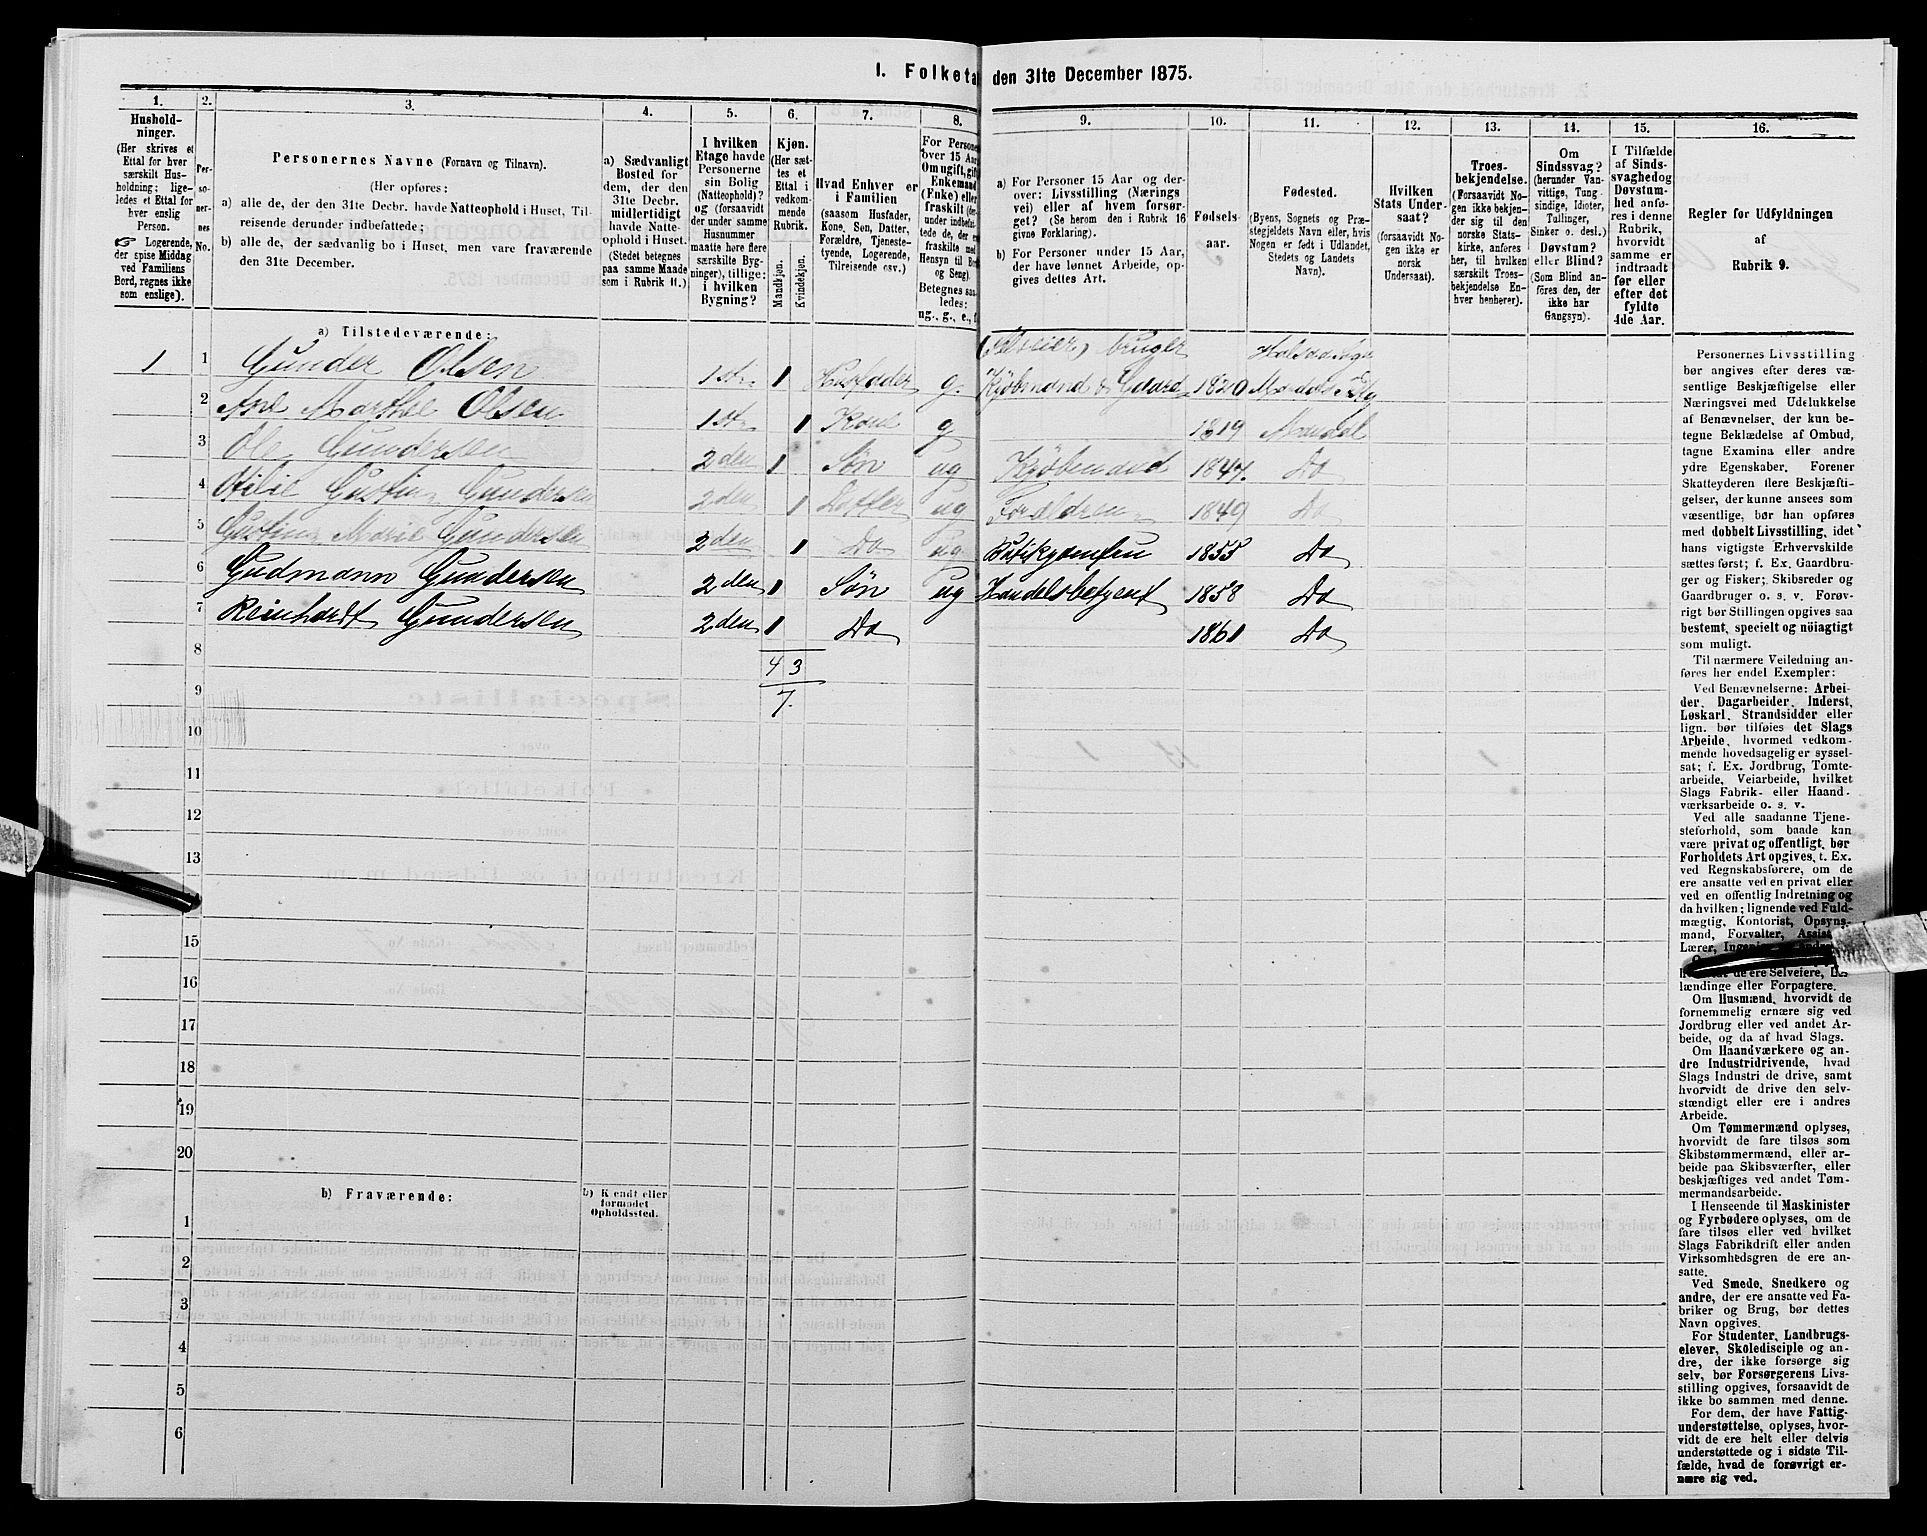 1. Folketa den 31te December 1875.
1.
Hushold-
ninger.
(Her skrives et
Ettal for hver
særskilt Hus-
holdning; lige-
ledes et Ettal for
hver enslig
Person.
☞ Logerende,
der spise Middag
ved Familiens
Bord, regnes ikke
som enslige).
2.
Per-
so-
ner-
nes-
No.
3.
Personernes Navne (Fornavn og Tilnavn).
(Her opføres:
a) alle de, der den 31te Decbr. havde Natteophold i Huset, Til-
reisende derunder indbefattede;
b) alle de, der sædvanlig bo i Huset, men vare fraværende
den 31te December.
4.
a) Sædvanligt
Bosted for
dem, der den
31te Decbr.
midlertidigt
havde Natte-
ophold i Huset.
(Stedet betegnes
paa samme Maade
som i Rubrik 11.)
5.
I hvilken
Etage havde
Personerne
sin Bolig
(Natteophold)?
og (forsaavidt
der under samme
Husnummer
maatte høre flere
særskilte Byg-
ninger), tillige:
i hvilken
Bygning?
6.
Kjøn.
(Her sæt-
tes et
Ettal i
vedkom-
mende
Rubrik.
Mandkjøn.
Kvindekjøn.
7.
Hvad Enhver er
i Familien
(saasom Husfader,
Kone, Søn, Datter,
Forældre, Tjeneste-
tyende, Logerende,
Tilreisende osv.)
8.
For Personer
over 15 Aar
Om ugift, gift
Enkemand
(Enke) eller
fraskilt
under indbefat-
tede de, der er
fraskilte med
Hensyn til Bord
og Seng).
Betegnes saa-
ledes:
ug., g., e., f.
9.
a) For Personer 15 Aar og der-
over: Livsstilling (Nærings
vei) eller af hvem forsør-
get? (Se herom den i Rubrik 16
givne Forklaring).
b) For Personer under 15 Aar,
der have lønnet Arbeide, op-
gives dettes Art.
10.
Fødsels-
aar.
11.
Fødested.
(Byens, Sognets og Præ-
stegjeldets Navn eller, hvis
Nogen er født i Udlandet,
Stedets og Landets
Navn).
12.
Hvilken
Stats Under-
saat?
(forsaavidt No-
gen ikke er
norsk
Undersaat).
13.
Troes-
bekjendelse.
(Forsaavidt No-
gen ikke bekjen-
der sig til den
norske Stats-
kirke, anføres
her, til hvilken
særskilt Troes-
bekjendelse En-
hver henhører).
14.
Om
Sindssvag?
(herunder Van-
vittige, Tung-
sindige, Idioter,
Tullinger,
Sinker o. desl.)
Døvstum?
eller Blind?
(Som Blind an-
føres den, der
ikke har
Gangsyn).
15.
I Tilfælde
af Sinds-
svaghed og
Døvstum-
hed anfø-
res i denne
Rubrik,
hvorvidt
samme er
indtraadt
før eller
efter det
fyldte
4de Aar.
16.
Regler for Udfyldningen
af
Rubrik 9.
a) Tilstedeværende:
1 1 Gunder Olsen 1ste 1 Husfader g. (Selveier) bruger Kjøbmand & Gaard 1820 Halsaa Sogn Mandals
2 Ane Marthe Olsen 1ste 1 Kone g 1819 Mandal
3 Ole Gundersen 2den 1 Søn ug 1847. Do
4 Gundersen 2den 1 Datter ug Forældrene 1849 Do
5 Gustine Marie Gundersen 2den 1 Do ug 1855 Do
6 Gudmann Gundersen 2den 1 Søn ug Handelsbetjent 1858 Do
7 Reinhardt Gundersen 2den 1 Do 1861 Do
8 4 3
9 7.
10
11
12
13
15
16
17
18
19
20
b) Fraværende:
b) Kjendt eller
formodet
Opholdssted.
1
2
3
4
5
6
Personernes Livsstilling
bør angives efter deres væ-
sentlige Beskjæftigelse eller
Næringsvei med Udelukkelse
af Benævnelser, der kun be-
tegne Beklædelse af Ombud,
tagne Examina eller andre
ydre Egenskaber. Forener
Skatteyderen flere Beskjæfti-
gelser, der kunne ansees som
væsentlige, bør han opføres
med dobbelt Livsstilling, idet
hans vigtigste Erhvervskilde
sættes først; f. Ex. Gaardbru-
ger og Fisker; Skibsreder og
Gaardbruger o. s. v. Forøv-
rigt bør Stillingen opgives saa
bestemt, specielt og nöiagtigt
som muligt.
Til nærmere Veiledning an-
føres her endel Exempler:
Ved Benævnelserne: Arbei-
der, Dagarbeider, Inderst,
Løskarl, Strandsidder eller
lign. bør tilføies det Slags
Arbeide, hvormed vedkom-
mende hovedsagelig er syssel-
sat; f. Ex. Jordbrug, Tomte-
arbeide, Veiarbeide, hvilket
Slags Fabrik- eller Haand-
værksarbeide o. s. v.
Ved alle saadanne Tjene-
steforhold, som baade kan
være privat og offentligt, bør
Forholdets Art opgives, t. Ex.
ved Regnskabsførere, om de
ere ansatte ved en privat eller
ved en offentlig Indretning og
da hvilken; lignende ved Fuld-
mægtig, Kontorist, Opsyns-
mand, Forvalter, Assistent,
Lærer,
de ere Selveiere, Lei-
lændinge eller Forpagtere.
Om Husmænd, hvorvidt de
fornemmelig ernære sig ved
Jordbrug eller ved andet Ar-
beide, og da af hvad Slags.
Om Haandværkere og an-
dre Industridrivende, hvad
Slags Industri de drive, samt
hvorvidt de drive den selv-
stændigt eller ere i andres
Arbeide.
Om Tømmermænd oplyses,
hvorvidt de fare tilsøs som
Skibstømmermænd, eller ar-
beide paa Skibsværfter, eller
beskjæftiges ved andet Tøm-
mermandsarbeide.
I Henseende til Maskinister
og Fyrbødere oplyses, om de
fare tilsøs eller ved hvilket
Slags Fabrikdrift eller anden
Virksomhedsgren de ere an-
satte.
Ved Smede, Snedkere og
andre, der ere ansatte ved Fa-
briker og Brug, bør dettes
Navn opgives.
For Studenter, Landbrugs-
elever, Skoledisciple og an-
dre, der ikke forsørge sig
selv, bør Forsørgerens Livs-
stilling opgives, forsaavidt de
ikke bo sammen med denne.
For dem, der have Fattig-
understøttelse, oplyses, hvor-
vidt de ere helt eller delvis
understøttede og i sidste Til-
fælde, hvad de forøvrigt er-
nære sig ved.